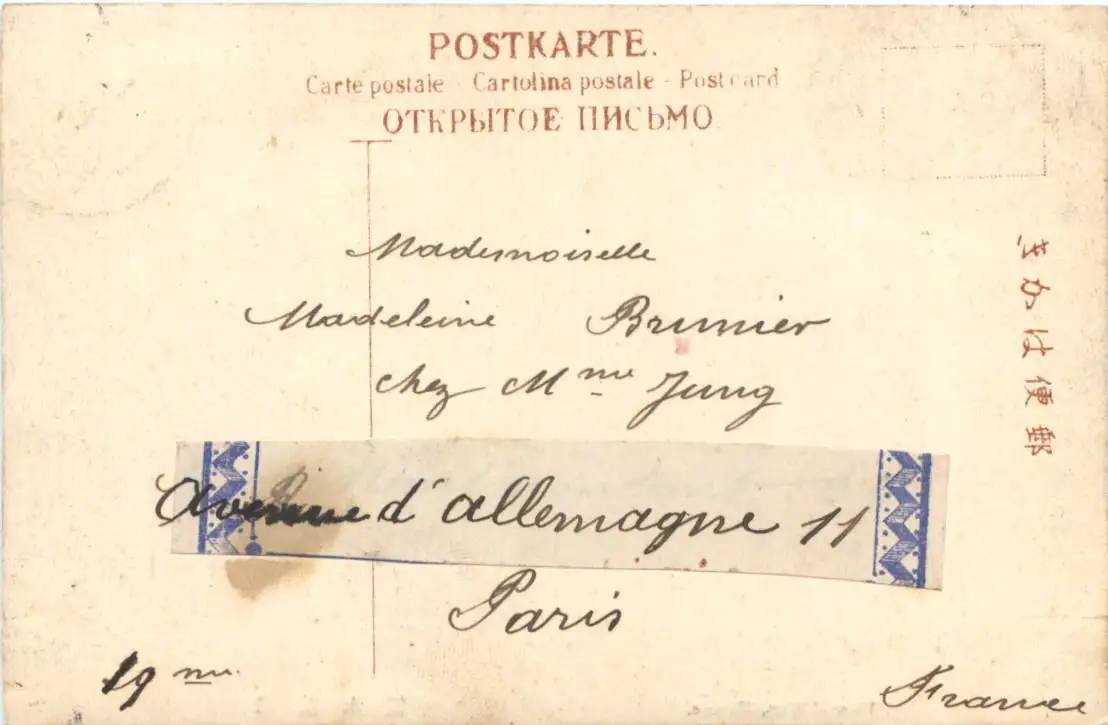 POSTKARTE.
Carte postale - Cartolina postale - Post card
ОТКРЫТОЕ ПИСЬМО
郵便はかき
Mademoiselle
Madeleine Brunier
chez Mme Jung
avenue d'allemagne 11
Paris
19 me
France